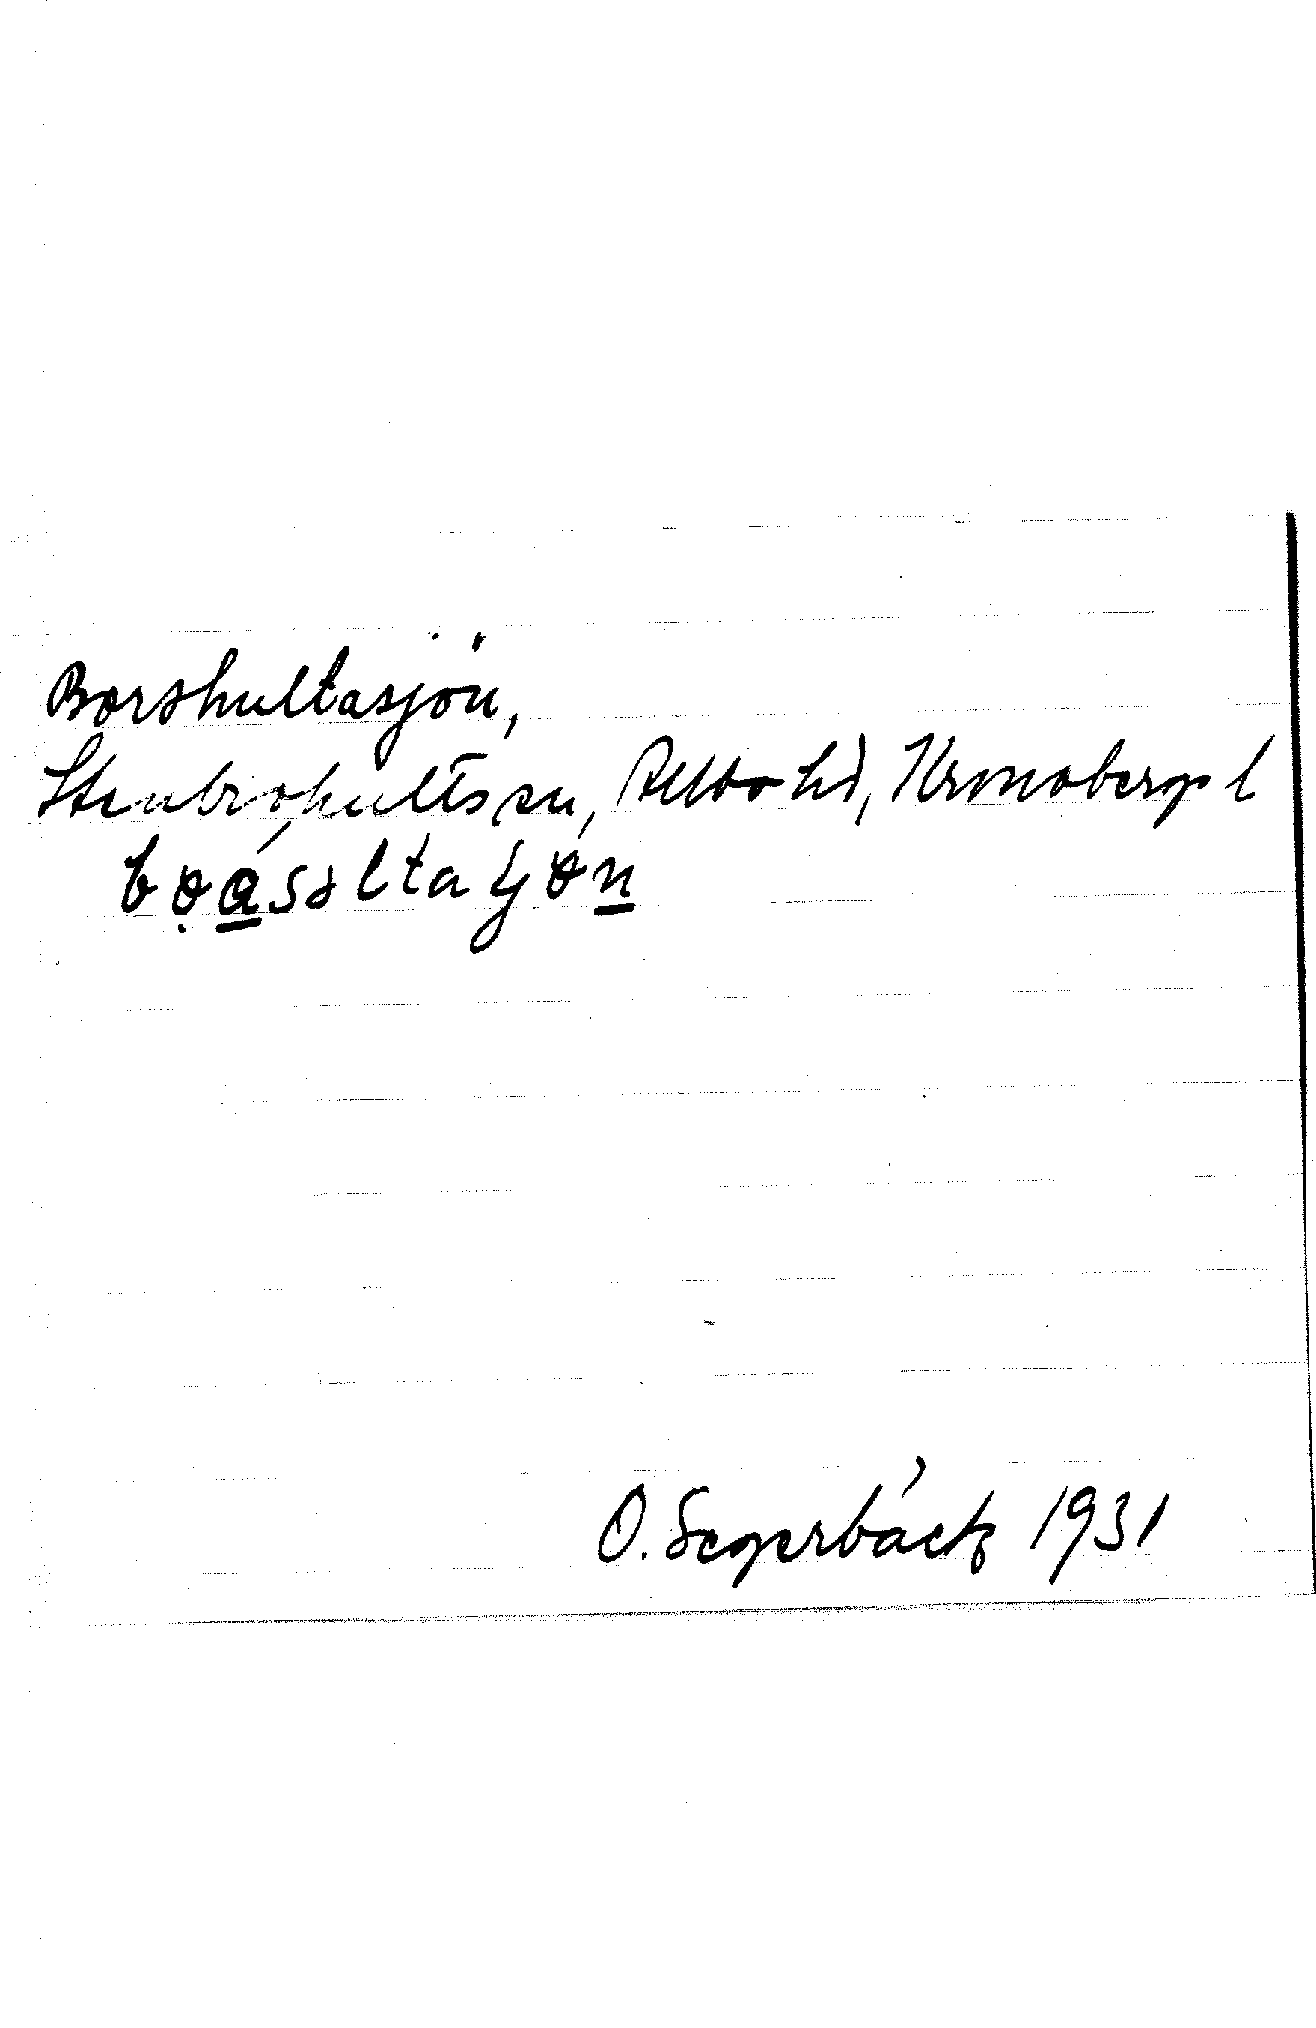 Borshultasjön,
Stenbrohults sn, Allbo hd, Kronobergs l
O. Segerbäck 1931